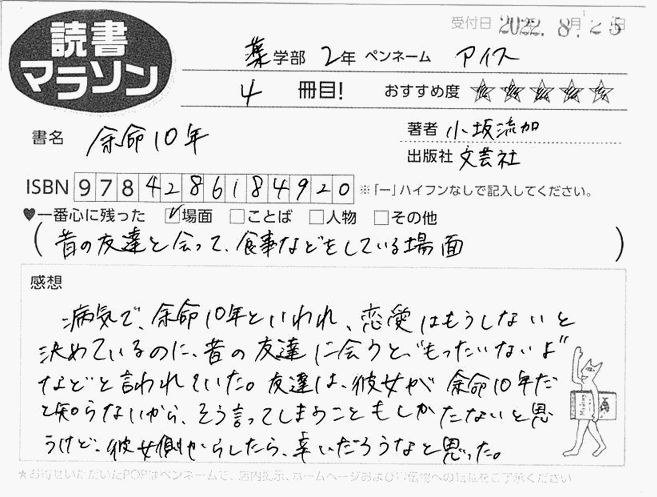 読書
マラソン
受付日 2022.8.25
薬学部 2年 ペンネーム アイス
4 冊目! おすすめ度 ★★★★★
書名 余命10年
著者 小坂流加
出版社 文芸社
ISBN 9784286184920 ※「ー」ハイフンなしで記入してください。
♥一番心に残った ☑場面 □ことば □人物 □その他
(昔の友達と会って、食事などをしている場面)
感想
病気で、余命10年といわれ、恋愛はもうしないと
決めているのに、昔の友達に会うと、"もったいないよ"
などと言われていた。友達は、彼女が余命10年だ
と知らないから、そう言ってしまうこともしかたないと思
うけど、彼女側からしたら、辛いだろうなと思った。
★お寄せいただいたPOPはペンネームで、店内掲示、ホームページおよび印刷物への掲載をご了承ください